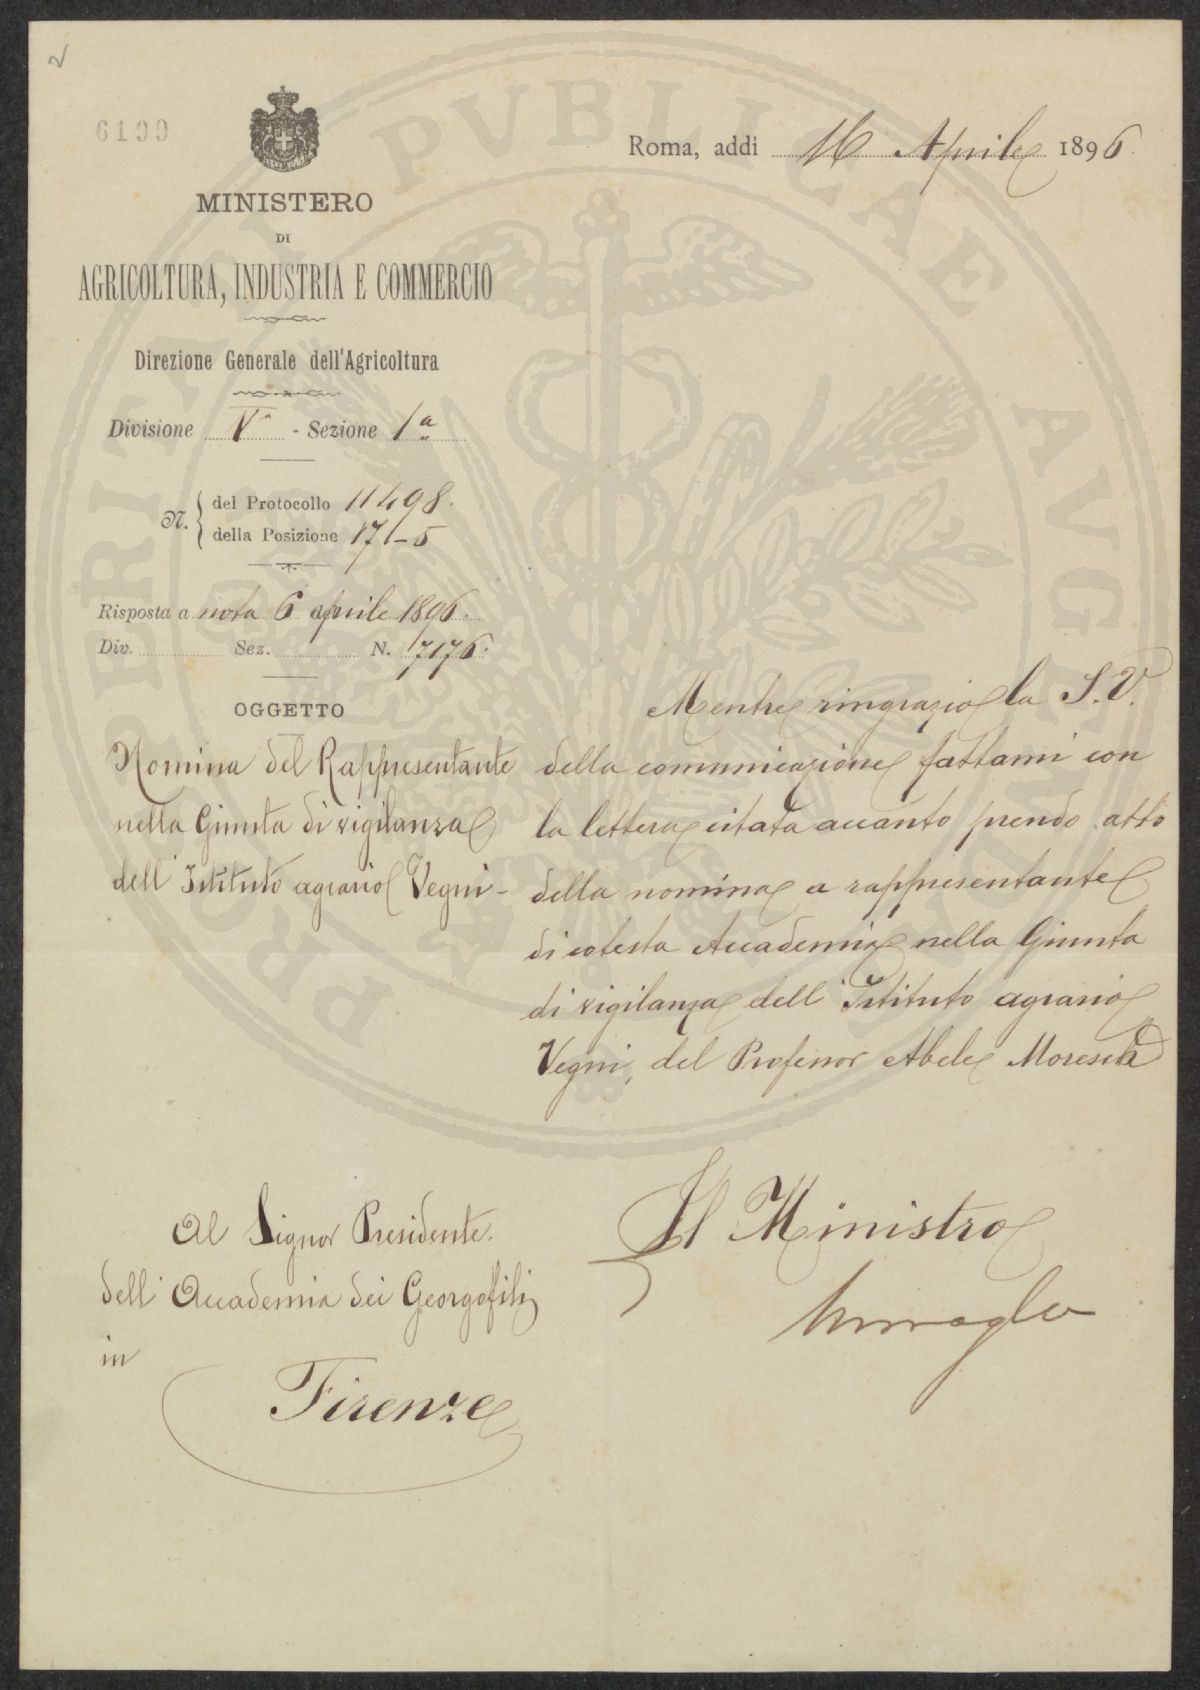 6199
Roma, addì 16 Aprile 1896
MINISTERO
DI
AGRICOLTURA, INDUSTRIA E COMMERCIO
Direzione Generale dell'Agricoltura
Divisione Va - Sezione 1a
N. del Protocollo 11498.
della Posizione 17-5
Risposta a nota 6 aprile 1896.
Div. Sez. N. 7176.
OGGETTO
Nomina del Rappresentante
nella Giunta di vigilanza
dell'Istituto agrario Vegni-
Mentre ringrazio la S.V.
della comunicazione fattami con
la lettera citata accanto prendo atto
della nomina a rappresentante
di cotesta Accademia nella Giunta
di vigilanza dell'Istituto agrario
Vegni, del Professor Abele Moreschi
Il Ministro
Al Signor Presidente.
dell'Accademia dei Georgofili
in
Firenze
PROSPERITATI PVBLICAE AVGENDAE